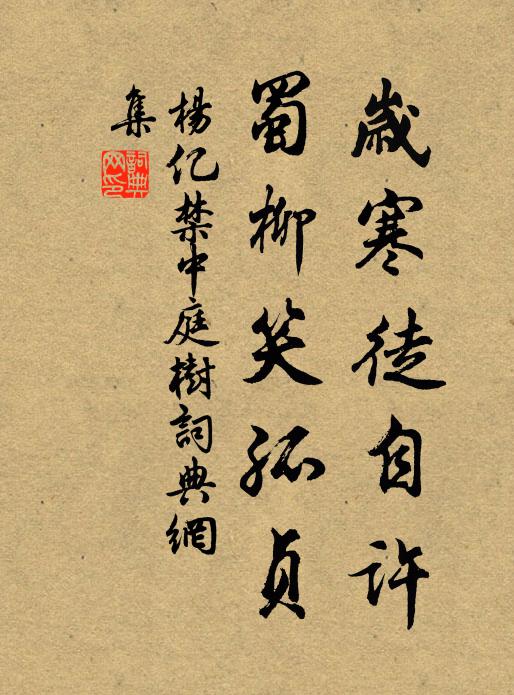 歲寒徒自許
蜀柳笑孤貞
楊亿禁中庭樹詞典網
集
詞典网印